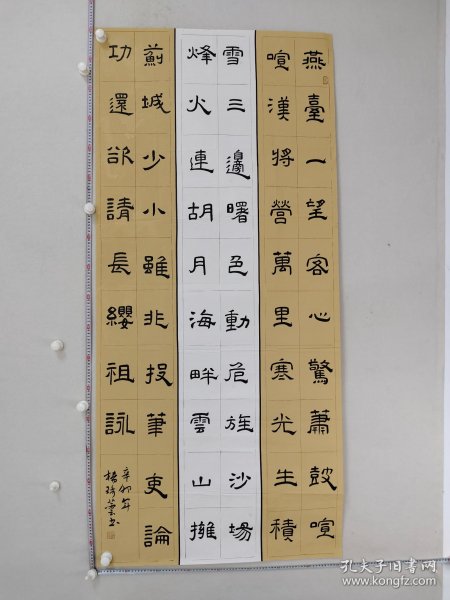 燕臺一望客心驚蕭鼓喧
喧漢將營萬里寒光生積
雪三邊曙色動危旌沙場
烽火連胡月海畔雲山擁
薊城少小雖非投筆吏論
功還欲請長纓祖詠
辛卯年
孔夫子旧书网
www.kongfz.com